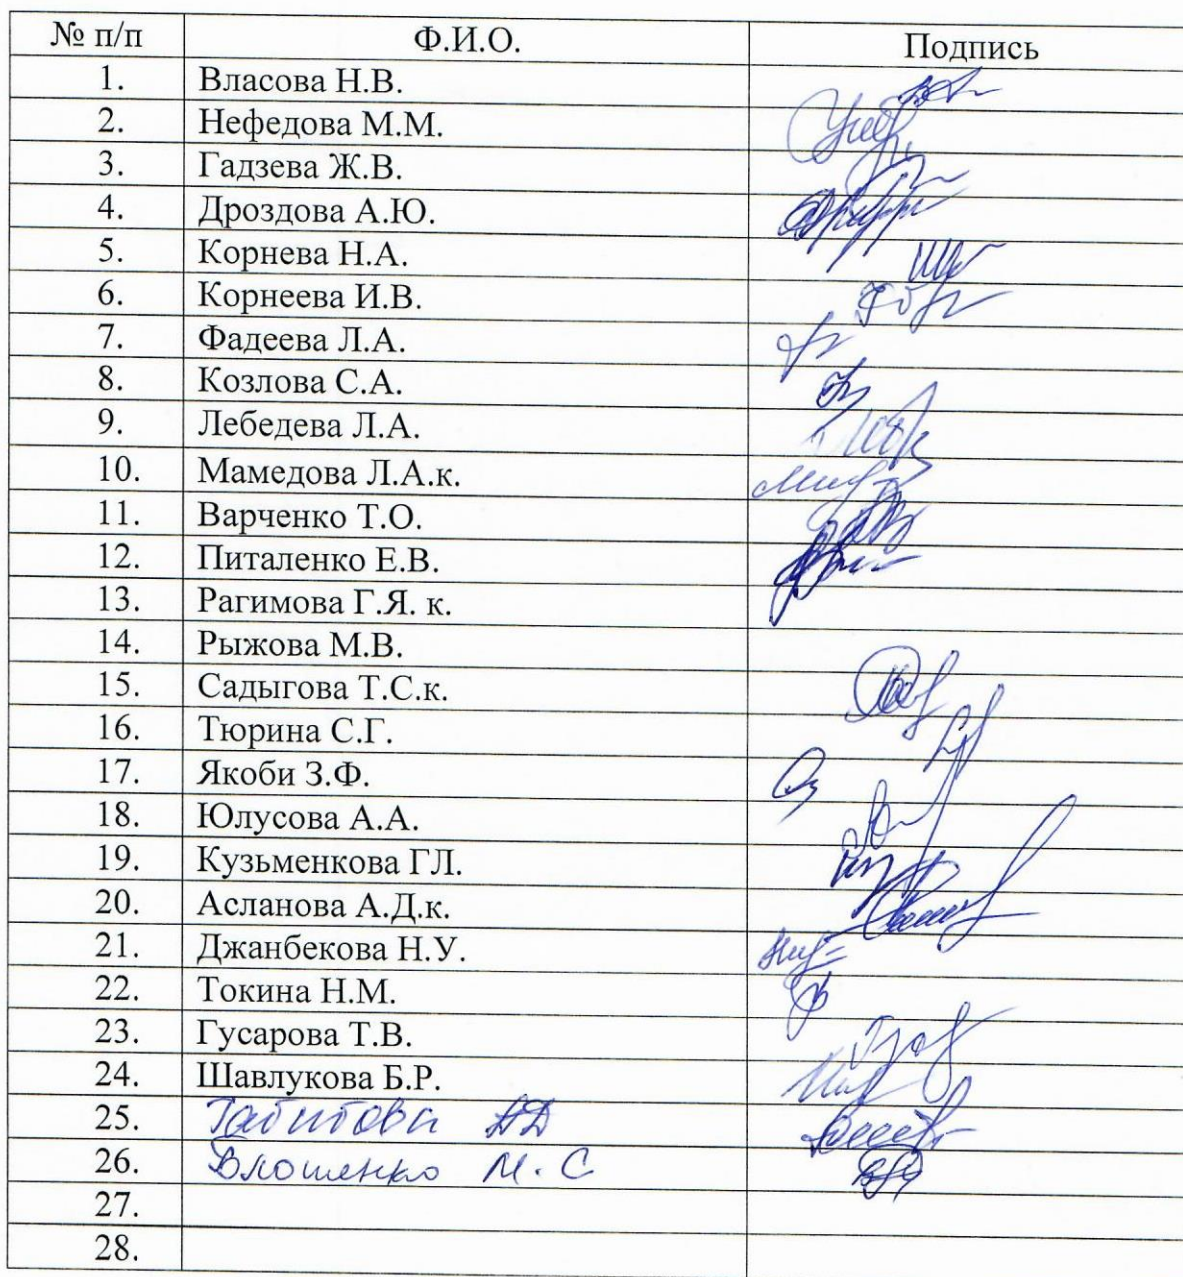 № п/п Ф.И.О. Подпись
1. Власова Н.В.
2. Нефедова М.М.
3. Гадзева Ж.В.
4. Дроздова А.Ю.
5. Корнева Н.А.
6. Корнеева И.В.
7. Фадеева Л.А.
8. Козлова С.А.
9. Лебедева Л.А.
10. Мамедова Л.А.к.
11. Варченко Т.О.
12. Питаленко Е.В.
13. Рагимова Г.Я. к.
14. Рыжова М.В.
15. Садыгова Т.С.к.
16. Тюрина С.Г.
17. Якоби З.Ф.
18. Юлусова А.А.
19. Кузьменкова ГЛ.
20. Асланова А.Д.к.
21. Джанбекова Н.У.
22. Токина Н.М.
23. Гусарова Т.В.
24. Шавлукова Б.Р.
25. Габитова АД
26. Влошенко М.С
27.
28.